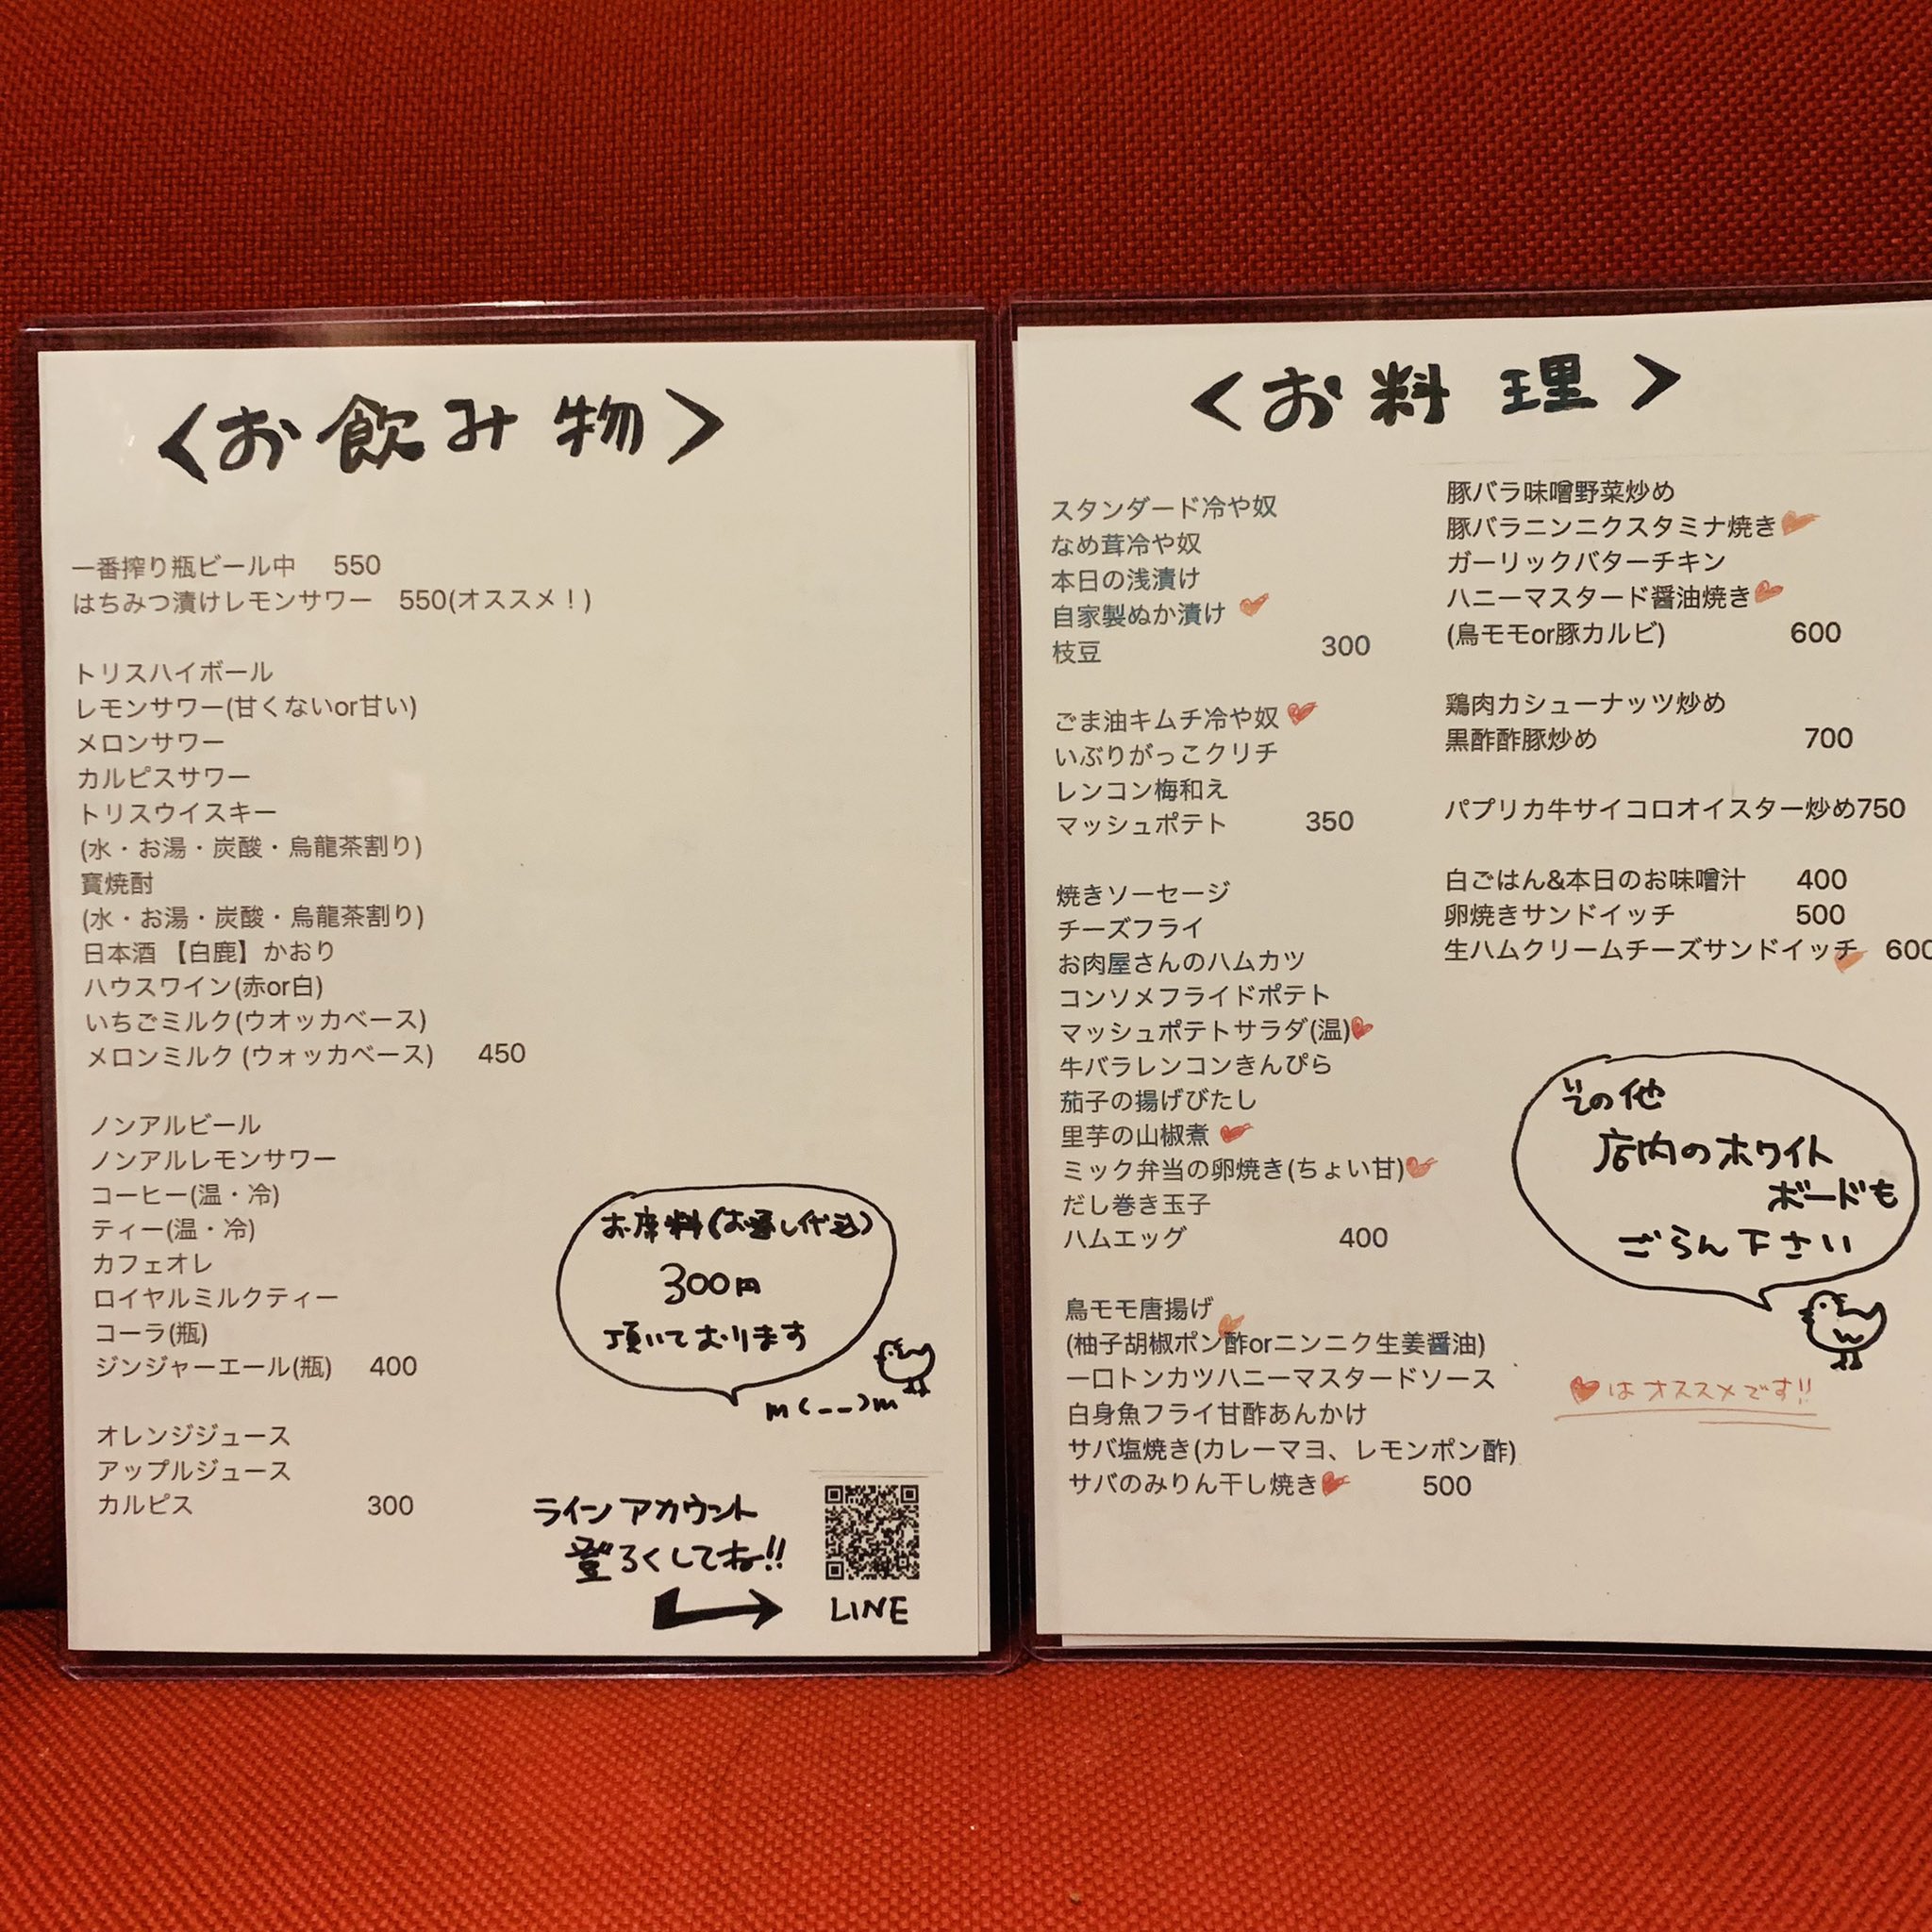 <お飲み物>
一番搾り瓶ビール中 550
はちみつ漬けレモンサワー 550(オススメ！)
トリスハイボール
レモンサワー(甘くないor甘い)
メロンサワー
カルピスサワー
トリスウイスキー
(水・お湯・炭酸・烏龍茶割り)
寶焼酎
(水・お湯・炭酸・烏龍茶割り)
日本酒【白鹿】かおり
ハウスワイン(赤or白)
いちごミルク(ウオッカベース)
メロンミルク (ウォッカベース) 450
ノンアルビール
ノンアルレモンサワー
コーヒー(温・冷)
ティー(温・冷)
カフェオレ
ロイヤルミルクティー
コーラ(瓶)
ジンジャーエール(瓶) 400
オレンジジュース
アップルジュース
カルピス 300
お席料(お通し代込)
300円
頂いております
m(__)m
ラインアカウント
登ろくしてね!!
LINE
<お料理>
スタンダード冷や奴
なめ茸冷や奴
本日の浅漬け
自家製ぬか漬け
枝豆 300
ごま油キムチ冷や奴
いぶりがっこクリチ
レンコン梅和え
マッシュポテト 350
焼きソーセージ
チーズフライ
お肉屋さんのハムカツ
コンソメフライドポテト
マッシュポテトサラダ(温)
牛バラレンコンきんぴら
茄子の揚げびたし
里芋の山椒煮
ミック弁当の卵焼き(ちょい甘)
だし巻き玉子
ハムエッグ 400
鳥モモ唐揚げ
(柚子胡椒ポン酢orニンニク生姜醤油)
一口トンカツハニーマスタードソース
白身魚フライ甘酢あんかけ
サバ塩焼き(カレーマヨ、レモンポン酢)
サバのみりん干し焼き 500
豚バラ味噌野菜炒め
豚バラニンニクスタミナ焼き
ガーリックバターチキン
ハニーマスタード醤油焼き
(鳥モモor豚カルビ) 600
鶏肉カシューナッツ炒め
黒酢酢豚炒め 700
パプリカ牛サイコロオイスター炒め750
白ごはん&本日のお味噌汁 400
卵焼きサンドイッチ 500
生ハムクリームチーズサンドイッチ 600
その他
店内のホワイト
ボードも
ごらん下さい
はオススメです!!